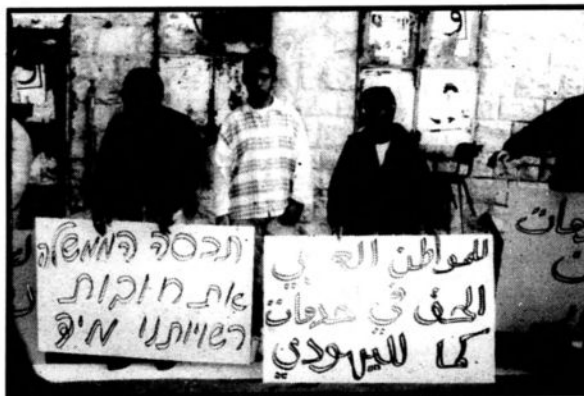 תכסה הממשלה
את חובות
רשויותנו מיד
للمواطن العربي
الحق في خدمات
كما لليهودي